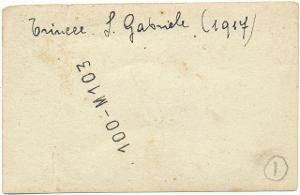 Trincee S. Gabriele (1917)
100-M103
1